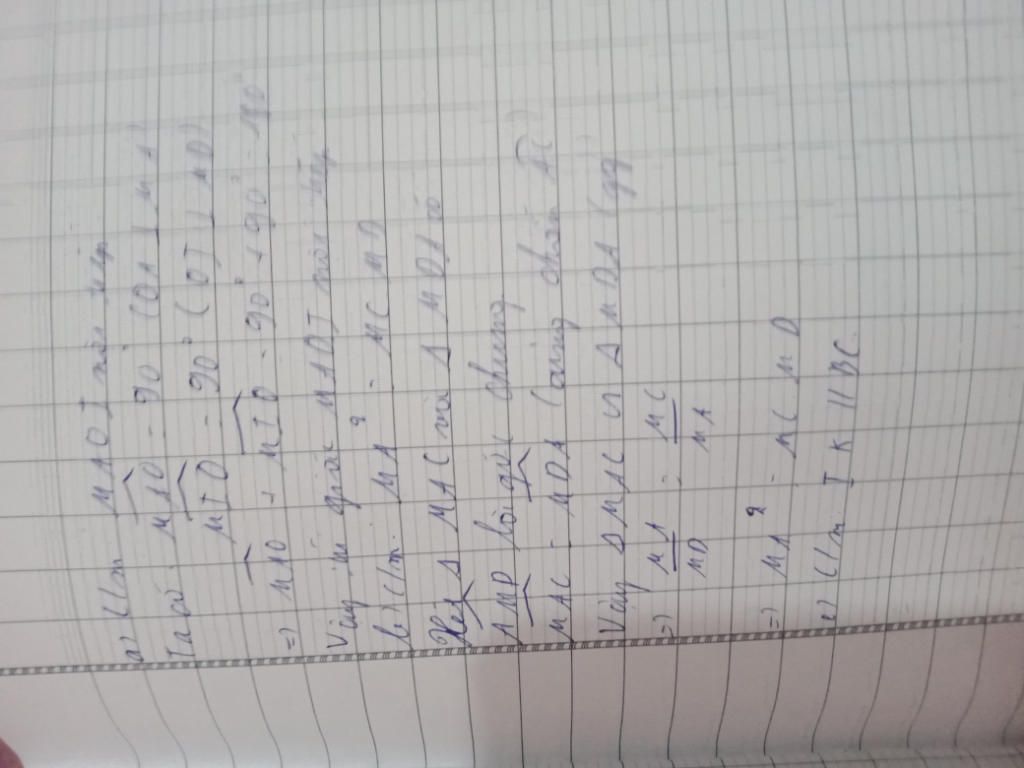 a) C/m MAOI nội tiếp
Ta có: MAO = 90° (OA ⊥ MA)
MIO = 90° (OI ⊥ MD)
=> MAO + MIO = 90° + 90° = 180°
Vậy tứ giác MAOI nội tiếp
b) C/m: MA² = MC . MD
Xét Δ MAC và Δ MDA có
AMD là góc chung
MAC = MDA (cùng chắn AC)
Vậy Δ MAC ∽ Δ MDA (gg
=> MA/MD = MC/MA
=> MA² = MC . MD
c) C/m: IK // BC